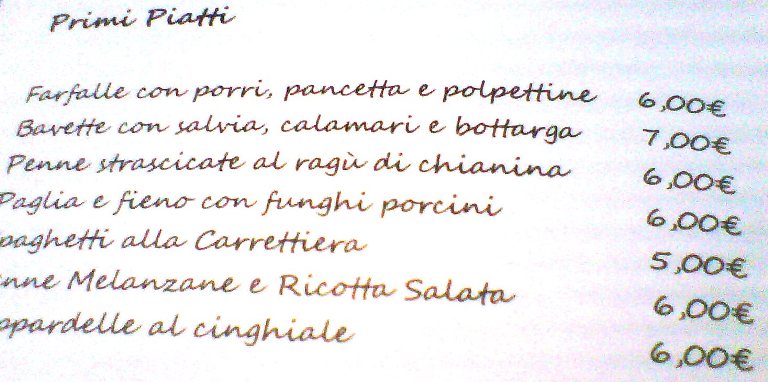 Primi Piatti
Farfalle con porri, pancetta e polpettine 6,00€
Bavette con salvia, calamari e bottarga 7,00€
Penne strascicate al ragù di chianina 6,00€
Paglia e fieno con funghi porcini 6,00€
paghetti alla Carrettiera 5,00€
nne Melanzane e Ricotta Salata 6,00€
ppardelle al cinghiale 6,00€